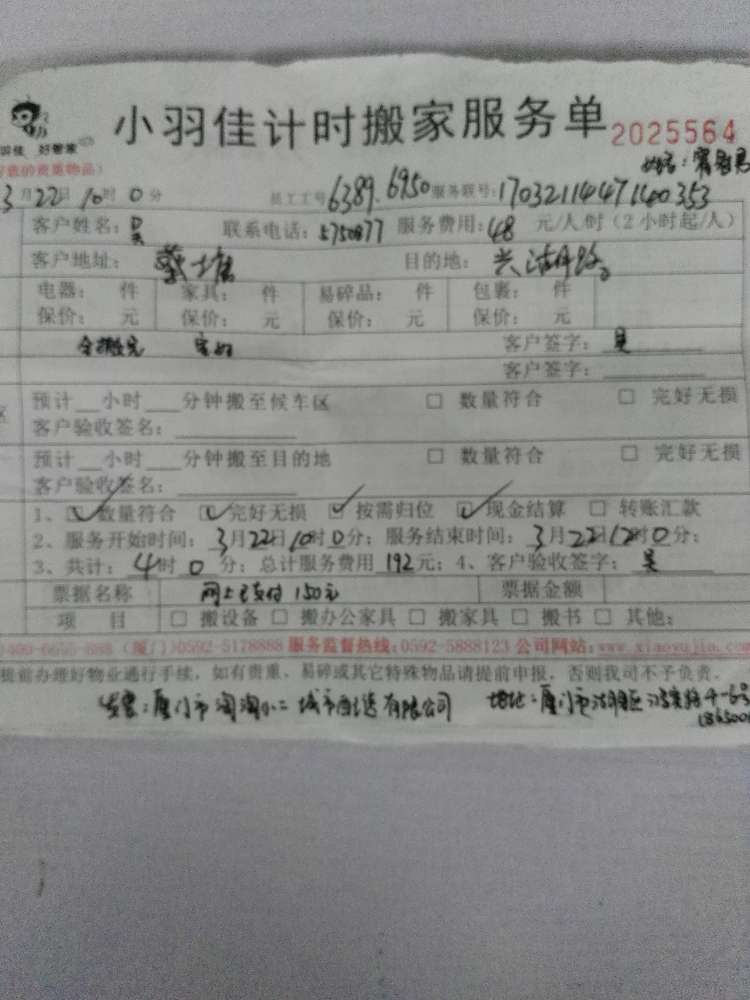 小羽佳计时搬家服务单 2025564
羽佳 好管家
的贵重物品）
3月22日10时0分 员工工号6389.6950 服务联号:17032114471400353
客户姓名：吴 联系电话：5750877 服务费用：48 元/人/时（2小时起/人）
客户地址：蔡塘 目的地：兴湖路。
电器： 件 家具： 件 易碎品： 件 包裹： 件
保价： 元 保价： 元 保价： 元 保价： 元
全搬完 完好 客户签字：吴
客户签字：
区 预计__小时__分钟搬至候车区 □ 数量符合 □ 完好无损
客户验收签名：
预计__小时__分钟搬至目的地 □ 数量符合 □ 完好无损
客户验收签名：
1、☑数量符合 ☑完好无损 ☑按需归位 ☑现金结算 □ 转账汇款
2、服务开始时间：3月22日10时0分；服务结束时间：3月22日12时0分；
3、共计：4时0分；总计服务费用192元；4、客户验收签字：吴
票据名称 网上已支付150元 票据金额
项 目 □ 搬设备 □ 搬办公家具 □ 搬家具 □ 搬书 □ 其他:
)400-6695-888 (厦门)0592-5178888 服务监督热线:0592-5888123 公司网站:www.xiaoyujia.com
提前办理好物业通行手续，如有贵重、易碎或其它特殊物品请提前申报，否则我司不予负责。
发票：厦门市淘淘小二城市配送有限公司 地址：厦门市湖里区